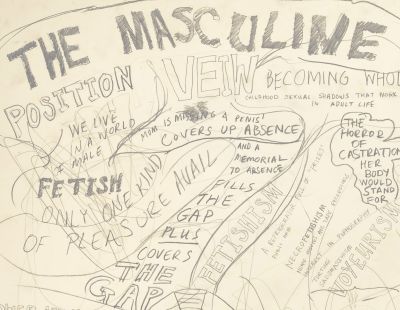 THE MASCULINE
POSITION
VEIW
BECOMING WHOL
CHILDHOOD SEXUAL SHADOWS THAT WORK
IN ADULT LIFE
WE LIVE
IN A WORLD
MALE
FETISH
ONLY ONE KIND
OF PLEASURE AVAIL
MOM IS MISSING A PENIS
COVERS UP ABSENCE
AND A
MEMORIAL
TO ABSENCE
FILLS
THE
GAP
PLUS
COVERS
THE
GAP
FETISHISM
THE
HORROR
OF
CASTRATION
HER
BODY
WOULD
STAND
FOR
VOYEURISM